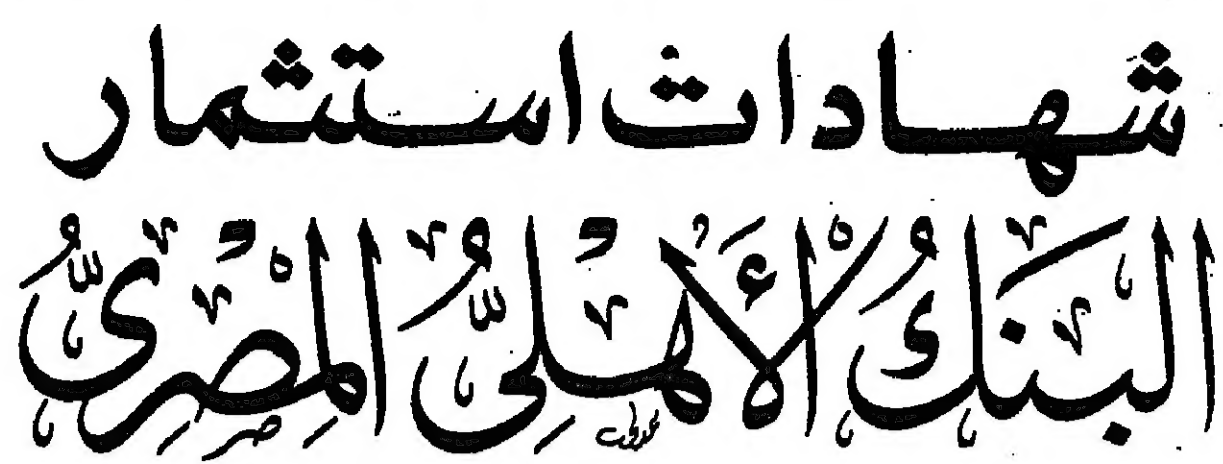 شهادات استثمار
البَنكُ الأَهْلِىُّ المِصْرِىُّ